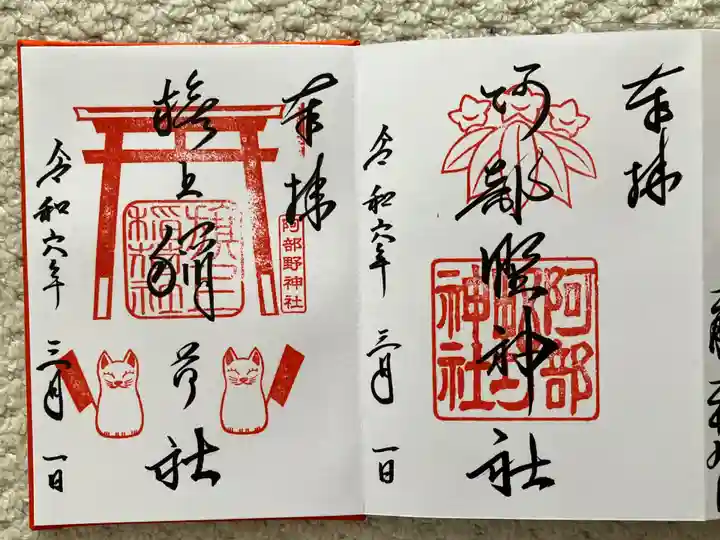 奉拝
阿部野神社
阿部野神社
令和六年三月一日
奉拝
阿部野神社
上稲荷社
令和六年三月一日